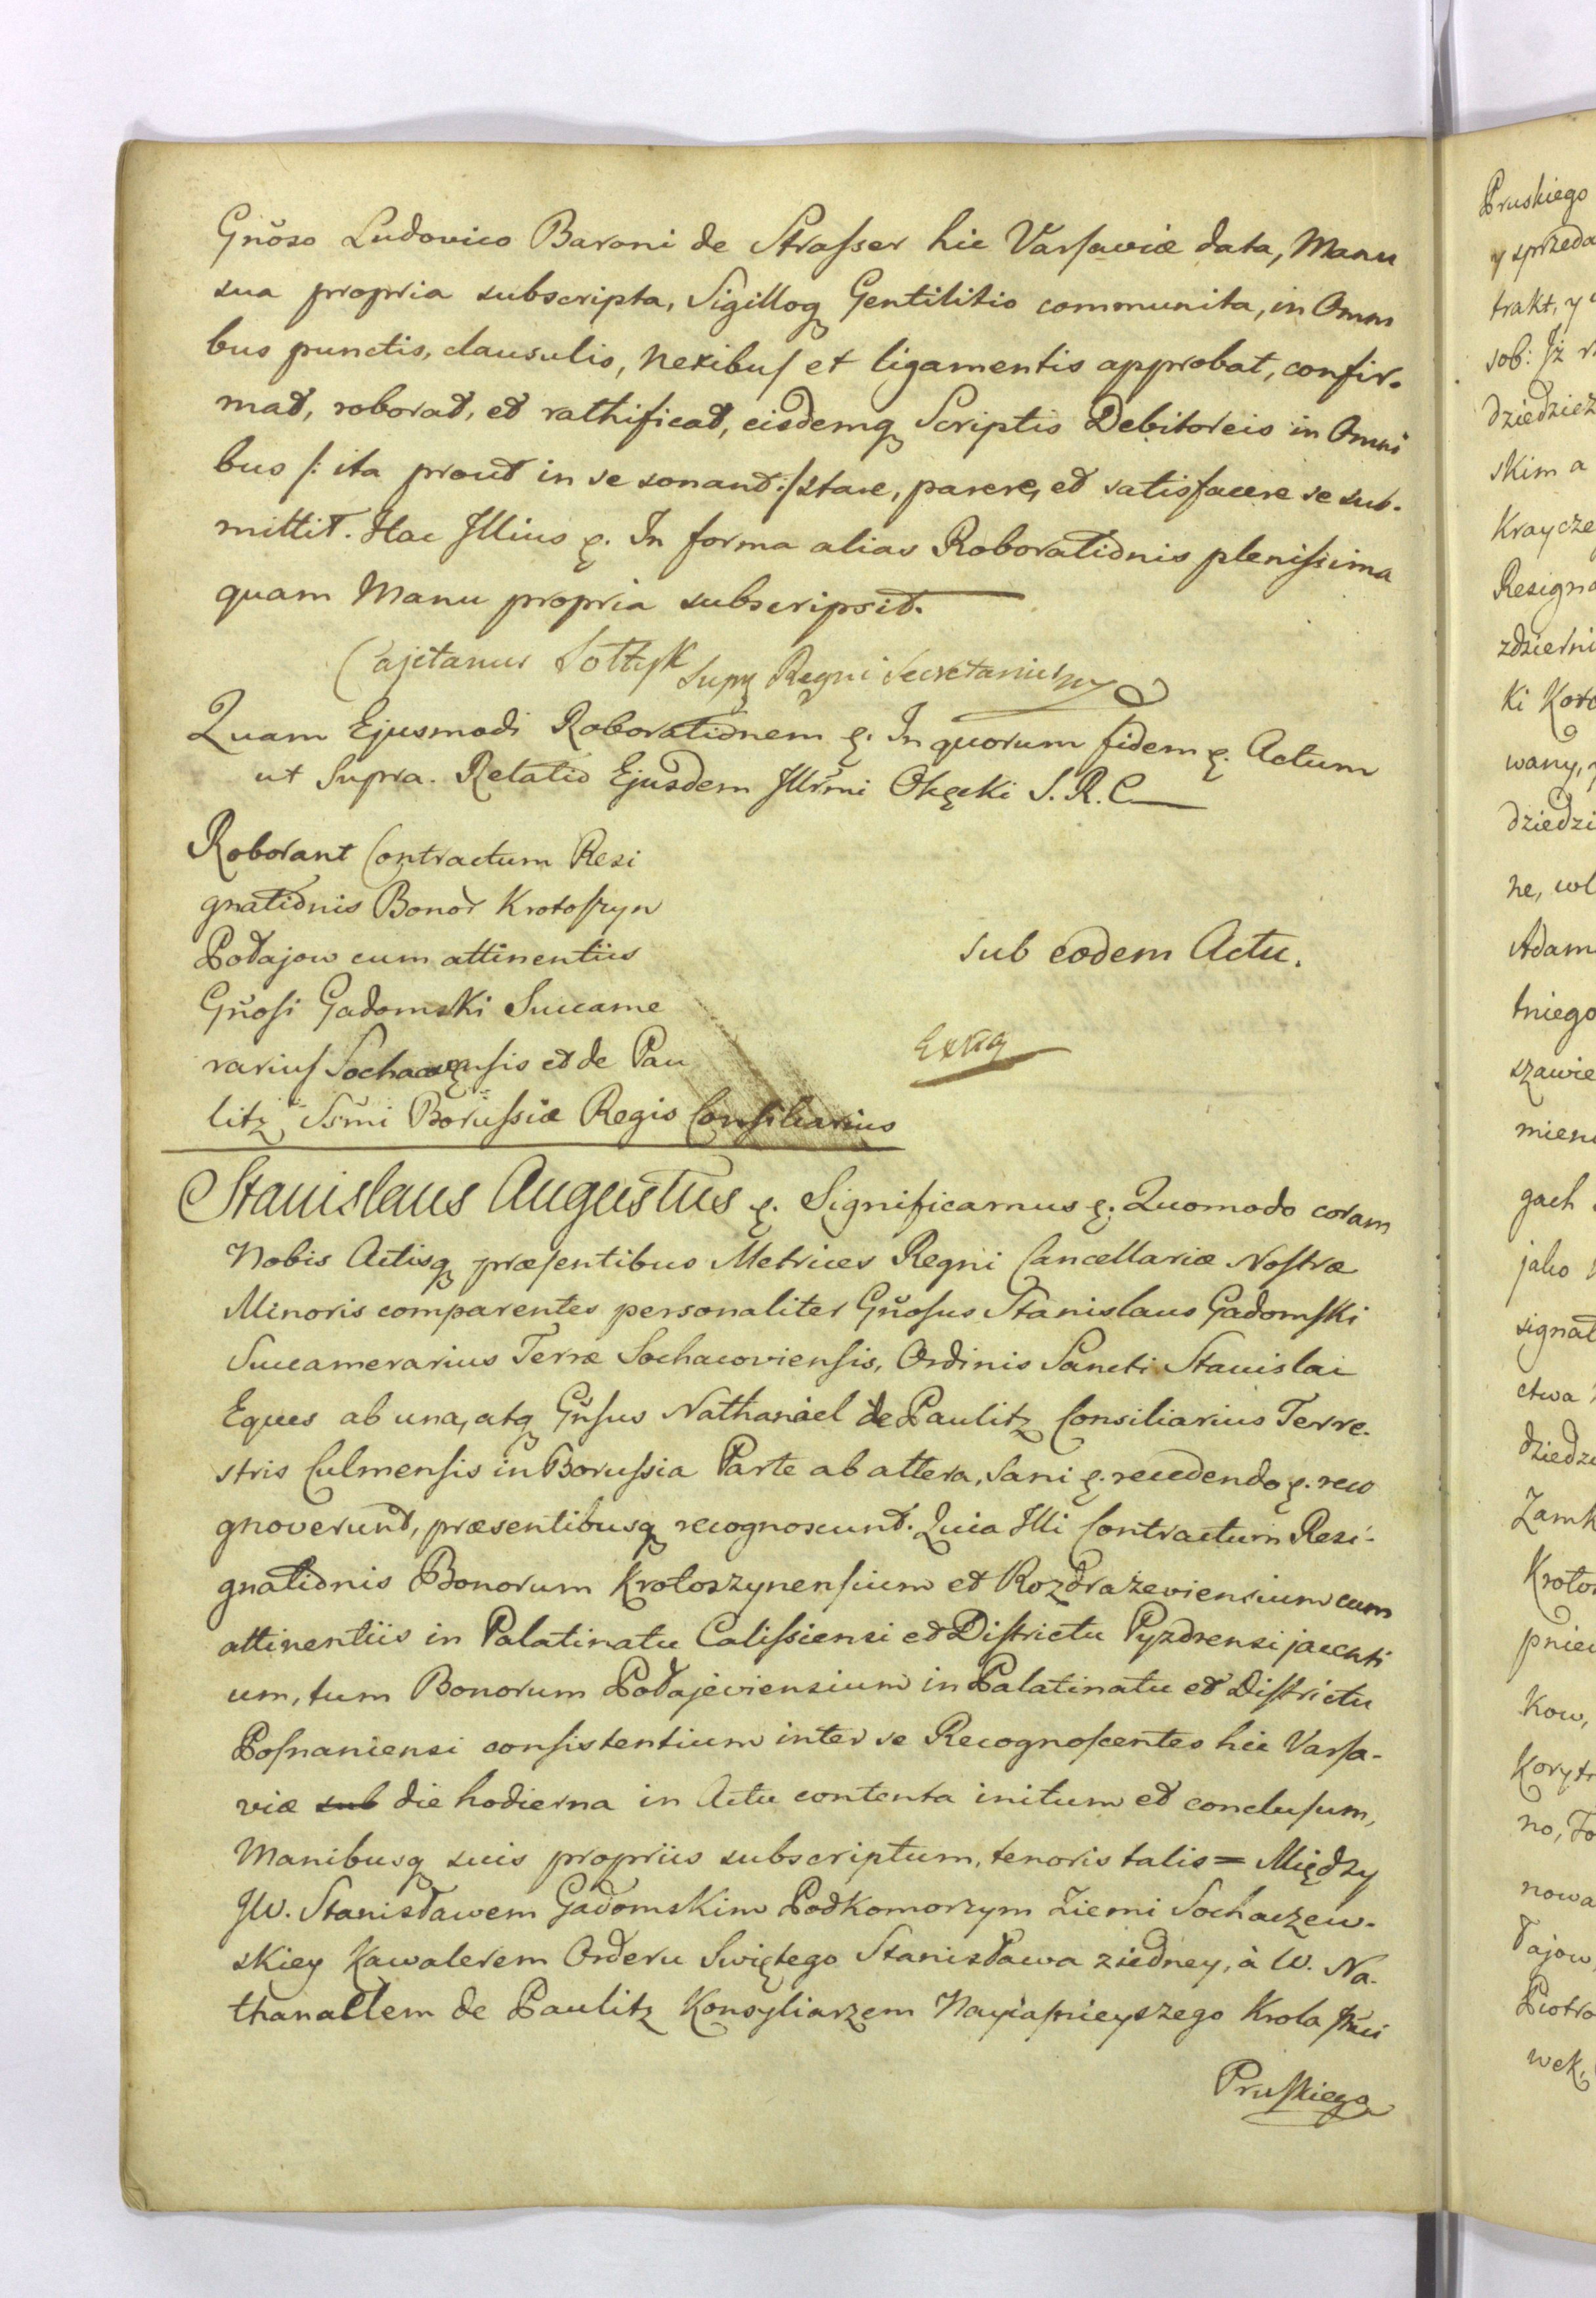 Gnoso Ludovico Baroni de Strasser hic Varsaviæ data, Manu
sua propria subscripta, Sigilloq Gentilitio communita, in Omni
bus punctis, clausulis, nexibus et ligamentis approbat, confir-
mat, roborat, et rathificat, eisdemq Scriptis Debitoreis in Omni
bus /: ita prout in se sonant :/ stare, parere, et satisfacere se sub-
mittit. Hac Illius &. In forma alias Roborationis plenissima
quam Manu propria subscripsit.
Cajetanus Sołtyk Supq Regni Secretarius mp
Quam Ejusmodi Roborationem &. In quorum fidem &. Actum
ut Supra. Relatio Ejusdem Illrmi Okęcki S. R. C
Roborant Contractum Resi
gnationis Bonor Krotoszyn
Potajow cum attinentiis
Gnosi Gadomski Succame
rarius Sochacensis et de Pau
litz Ssmi Borussiæ Regis Consiliarius
sub eodem Actu.
Extra
Stanislaus Augustus &. Significamus &. Quomodo coram
Nobis Actisq præsentibus Metrices Regni Cancellariæ Nostræ
Minoris comparentes personaliter Gnosus Stanislaus Gadomski
Succamerarius Terræ Sochacoviensis, Ordinis Sancti Stanislai
Eques ab una, atq Gnsus Nathanael de Paulitz Consiliarius Terre-
stris Culmensis in Borussia Parte ab altera, sani &. recedendo &. reco
gnoverunt, præsentibusq recognoscunt. Quia Illi Contractum Resi-
gnationis Bonorum Krotoszynensium et Rozdrażeviensium cum
attinentiis in Palatinatu Calissiensi et Districtu Pyzdrensi jacenti
um, tum Bonorum Potajeviensium in Palatinatu et Districtu
Posnaniensi consistentium inter se Recognoscentes hic Varsa-
viæ sub die hodierna in Actu contenta initum et conclusum,
Manibusq suis propriis subscriptum, tenoris talis = Między
JW. Stanisławem Gadomskim Podkomorzym Ziemi Sochaczew-
skiey Kawalerem Orderu Swiętego Stanisława ziedney, à W. Na-
thanaelem de Paulitz Konsyliarzem Nayiaśnieyszego Krola
Pruskiego
Pruskiego
y sprzeda
trakt, y
sob: Jż
dziedzicz
skim a
Kraycze
Resigna
zdzielni
ki
wany,
dziedzi
ne,
Adam
tniego
szawie
mien
gach
jako
signat
ctwa
dziedzi
Zamk
Kroto
pniew
kow,
Koryt
no,
nowa
tajow
Piotro
wek,